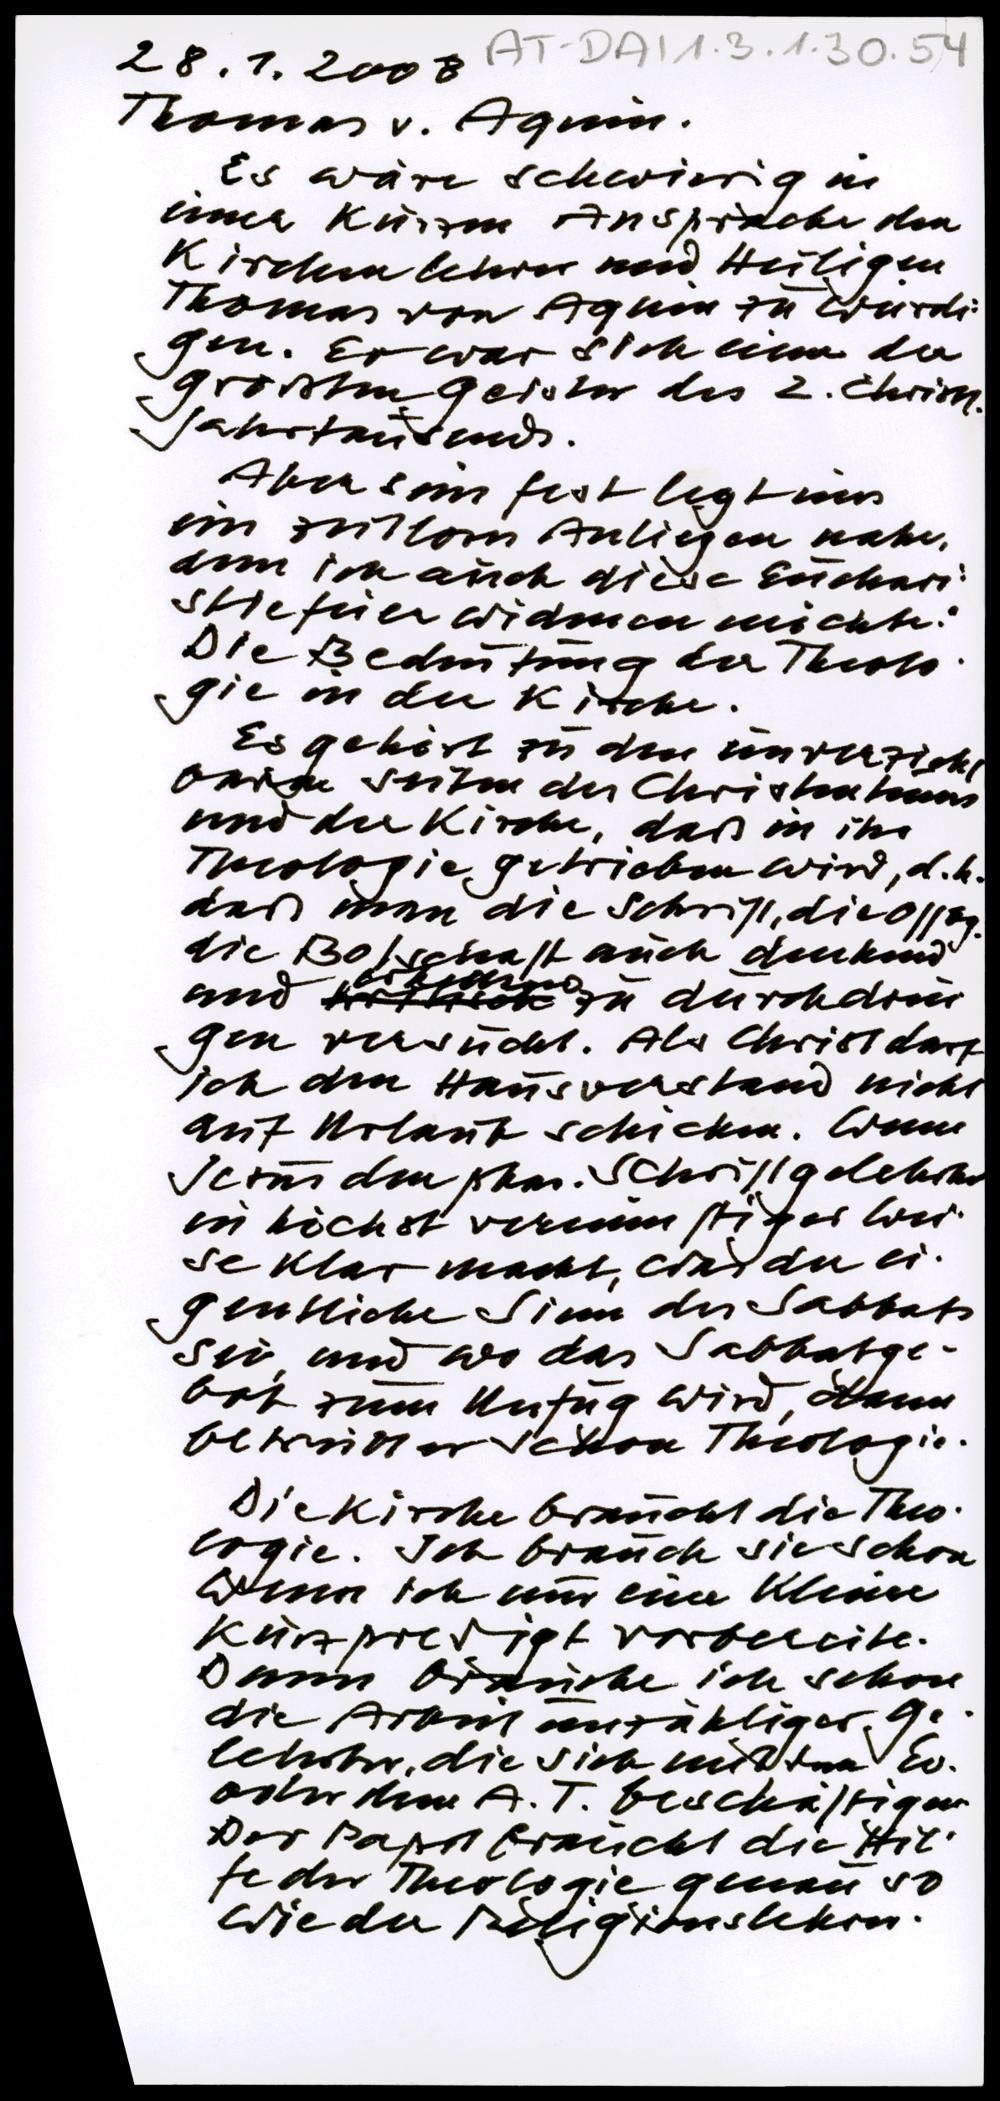 28.1.2008 AT-DAI 1.3.1.30.54
Thomas v. Aquin.
Es wäre schwierig in
einer kurzen Ansprache den
Kirchenlehrer und Heiligen
Thomas von Aquin zu würdi-
gen. Er war sich einer der
grössten Geister des 2. christl.
Jahrtausends.
Aber sein Fest legt uns
ein zeitloses Anliegen nahe,
dem ich auch diese Euchari-
stiefeier widmen möchte:
Die Bedeutung der Theolo-
gie in der Kirche.
Es gehört zu den unverzicht
baren Seiten des Christentums
und der Kirche, daß in ihr
Theologie getrieben wird, d.h.
daß man die Schrift, die Offbg.
die Botschaft auch denkend
und zu durchdrin
gen versucht. Als Christ darf
ich den Hausverstand nicht
auf Urlaub schicken. Wenn
Jesus den phar. Schriftgelehrten
in höchst vernünftiger Wei-
se klar macht, was der ei-
gentliche Sinn des Sabbats
sei, und wo das Sabbatge-
bot zum Unfug wird, dann
betreibt er schon Theologie.
Die Kirche braucht die Theo-
logie. Ich brauch sie schon
wenn ich nur eine kleine
Kurzpredigt vorbereite.
Dann brauche ich schon
die Arbeit unzähliger Ge-
lehrter, die sich mit dem Ev.
oder dem A.T. beschäftigen
Der Papst braucht die Hil-
fe der Theologie genau so
wie der Religionslehrer.